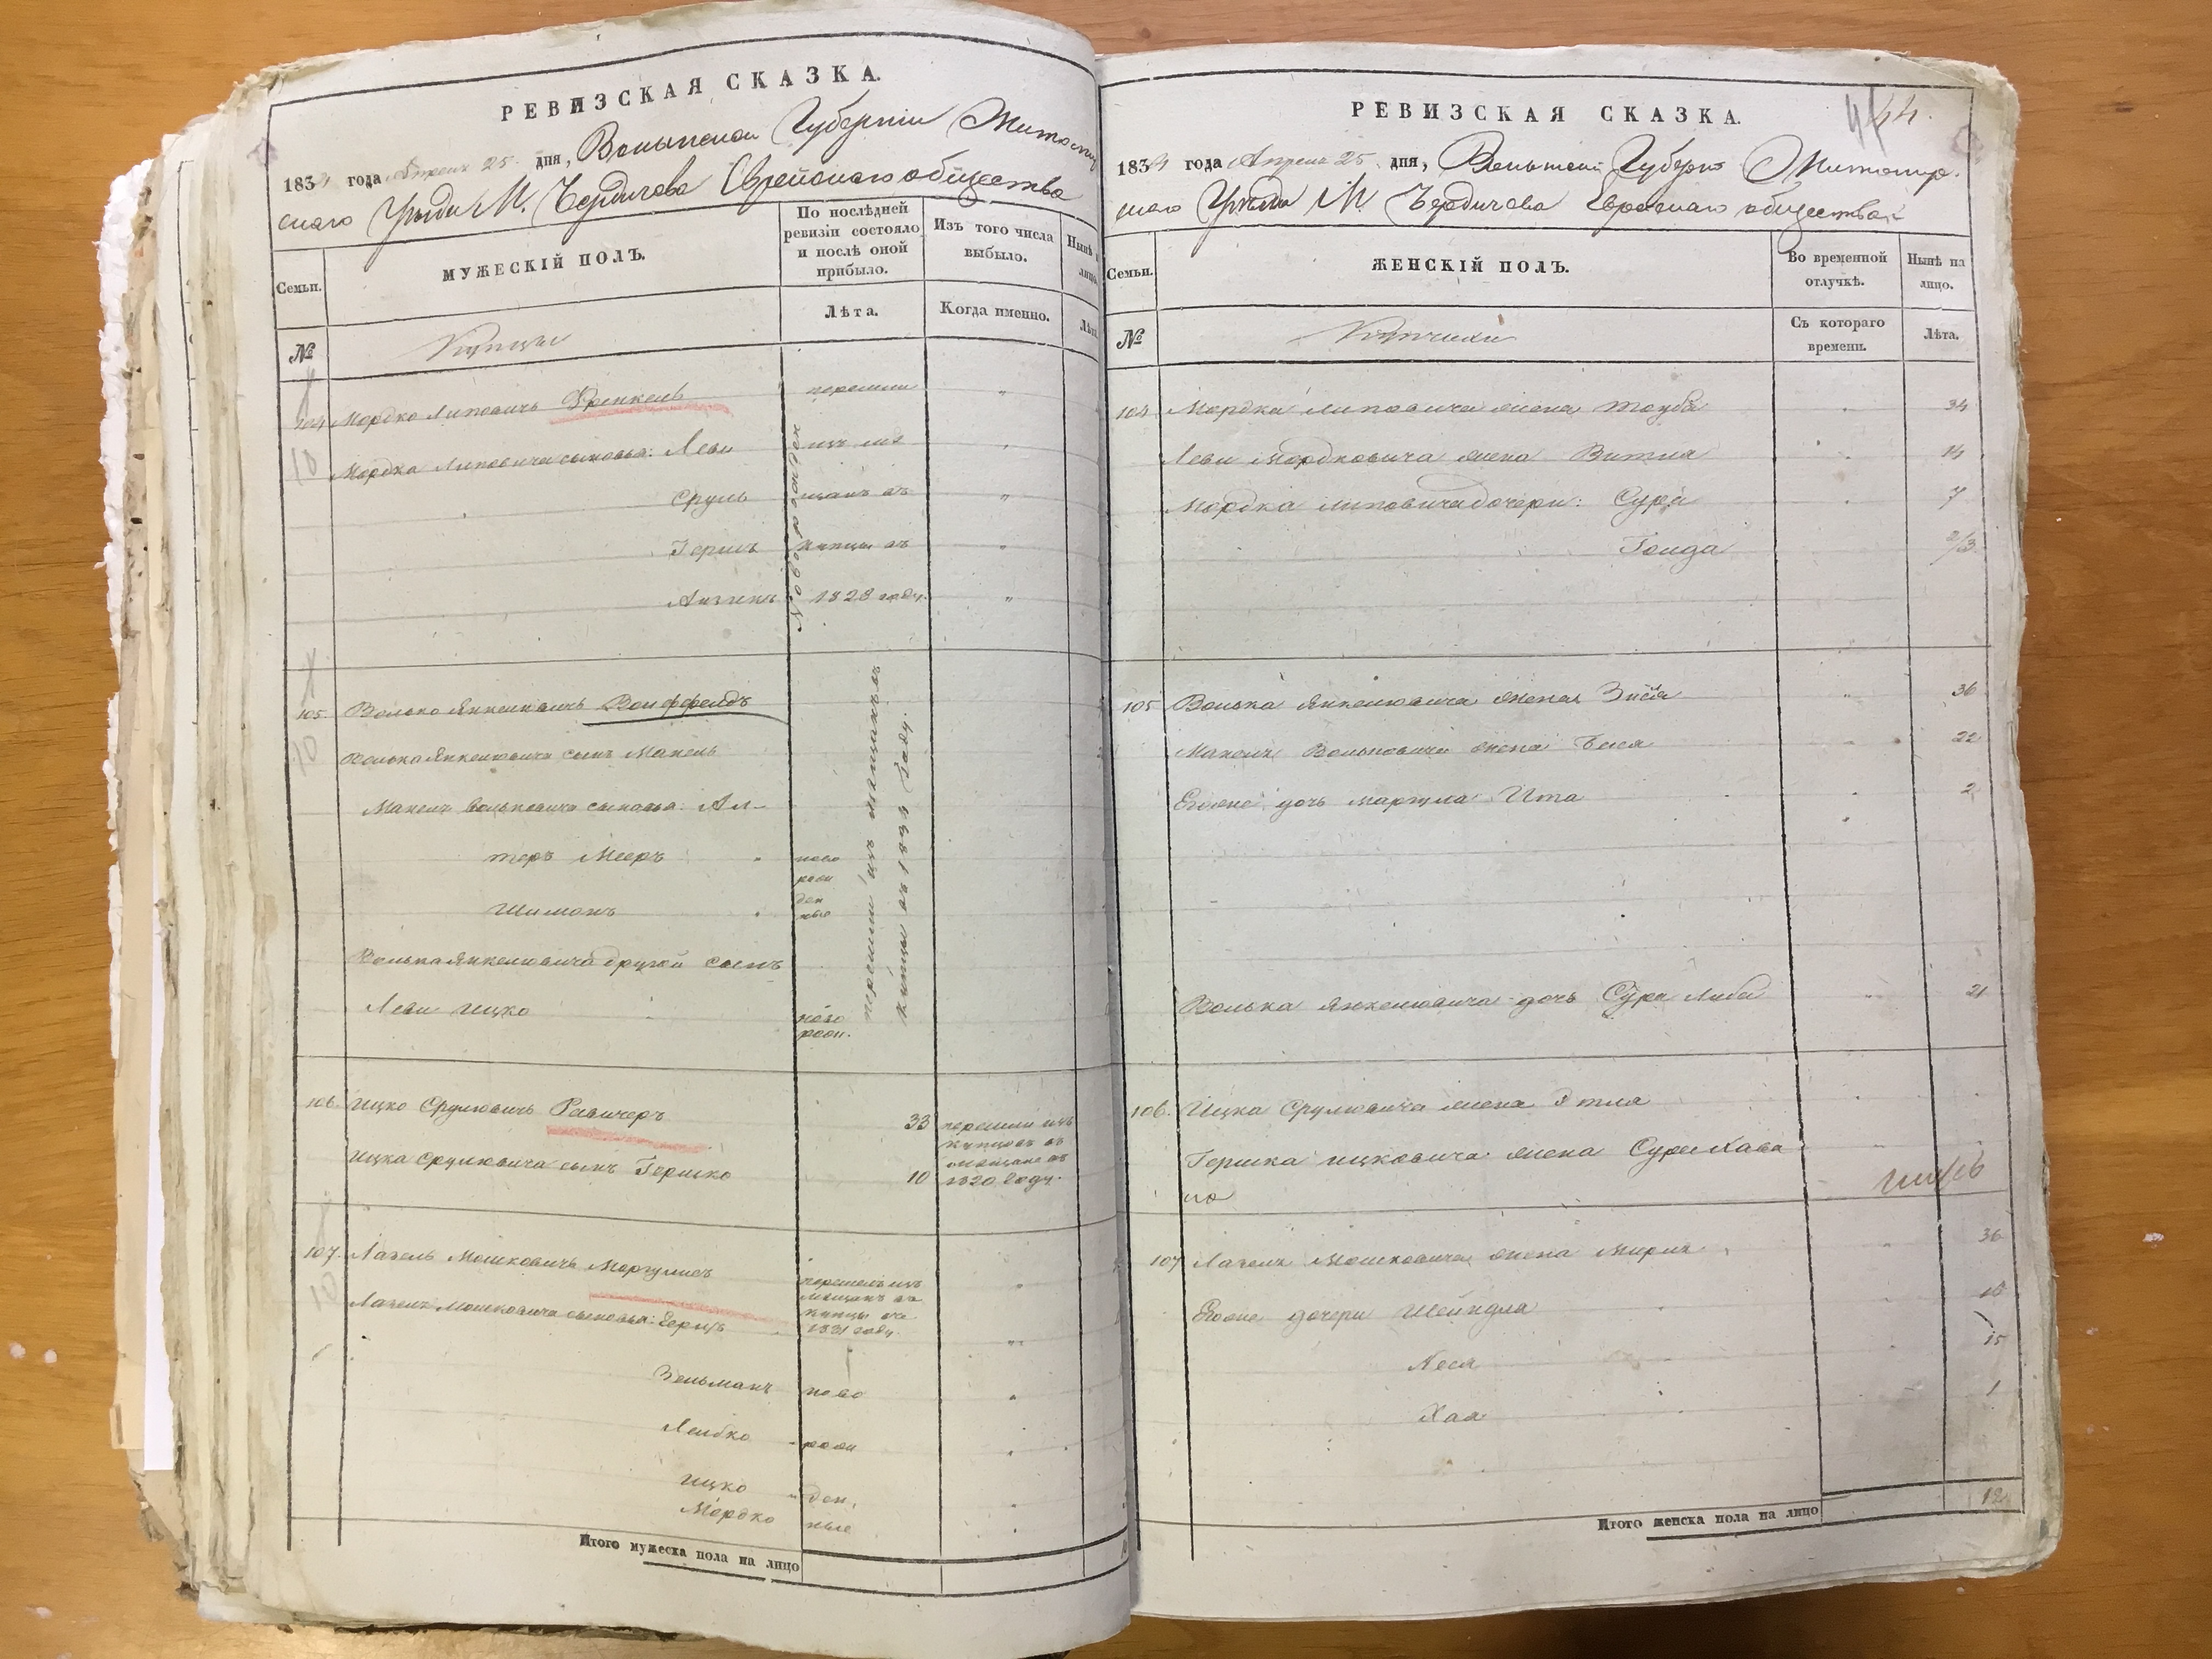 РЕВИЗСКАЯ СКАЗКА.
1834 года Апреля 25 дня, Волынской Губерніи Житомир
скаго Уезда М. Бердичева Еврейскаго общества
Семьи.
МУЖЕСКІЙ ПОЛЪ.
По послѣдней ревизіи состояло и послѣ оной прибыло.
Изъ того числа выбыло.
Нынѣ
лицо
№
Купцы
Лѣта.
Когда именно.
Лѣта
104 Мордко Липовичъ Френкель перешли
10
Мордка Липовича сыновья: Леви изъ ме
Сруль щанъ въ
Гершъ купцы въ
Айзикъ 1828 году.
105. Волько Янкелювичъ Вольффельдъ
10
Волька Янкелювича сынъ Манель
Манеля Вольковича сыновья: Ал-
теръ Мееръ ново
рож
Шимонъ ден
ные
Волька Янкелювича другой сынъ
Леви Ицко ново
рож.
перешли изъ мещанъ въ
купцы въ году.
106. Ицко Срулювичъ Равичеръ 33 перешли изъ
купцовъ въ
Ицка Срулювича сынъ Гершко 10 мещане въ
1820 году.
107. Лазель Мошковичъ Моргулисъ
перешелъ изъ
мещанъ въ
купцы въ
1831 году.
10
Лазеля Мошковича сыновья: Герцъ
Зельманъ ново
Лейбко рож
Ицко ден,
Мордко ные
Итого мужеска пола на лицо
РЕВИЗСКАЯ СКАЗКА.
44.
1834 года Апреля 25 дня, Волынской Губерніи Житомир.
скаго Уезда М. Бердичева Еврейскаго общества
Семьи.
ЖЕНСКІЙ ПОЛЪ.
Во временной отлучкѣ.
Нынѣ на лицо.
№
Купчихи
Съ котораго времени.
Лѣта.
104 Мордка Липовича жена Тауба 34
Леви Мордковича жена Витля 14
Мордка Липовича дочери: Сура 7
Голда 2/3
105 Волька Янкелювича жена Зися 36
Манеля Вольковича жена Бася 22
Его же дочь Ита 2
Волька Янкелювича дочь Сура Либа 21
106. Ицка Срулювича жена Этля
Гершка Ицковича жена Сура Хава
107 Лазеля Мошковича жена Миря 36
Его же дочери Шейндля 18
Неся 15
Хая 1
Итого женска пола на лицо 12